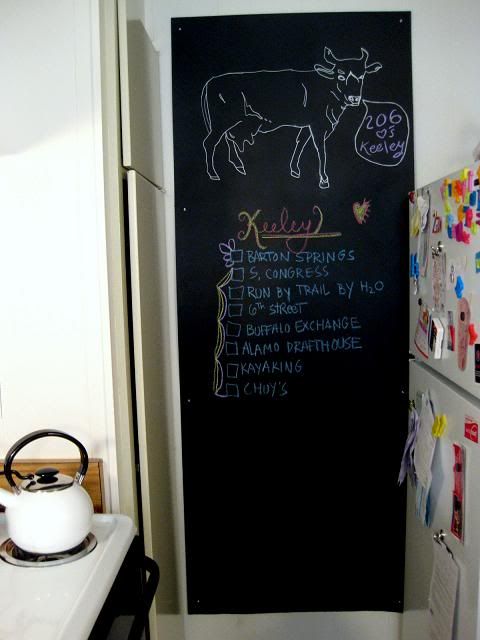 206
♡s
Keeley
Keeley
BARTON SPRINGS
S. CONGRESS
RUN BY TRAIL BY H2O
6th STREET
BUFFALO EXCHANGE
ALAMO DRAFTHOUSE
KAYAKING
CHUY'S